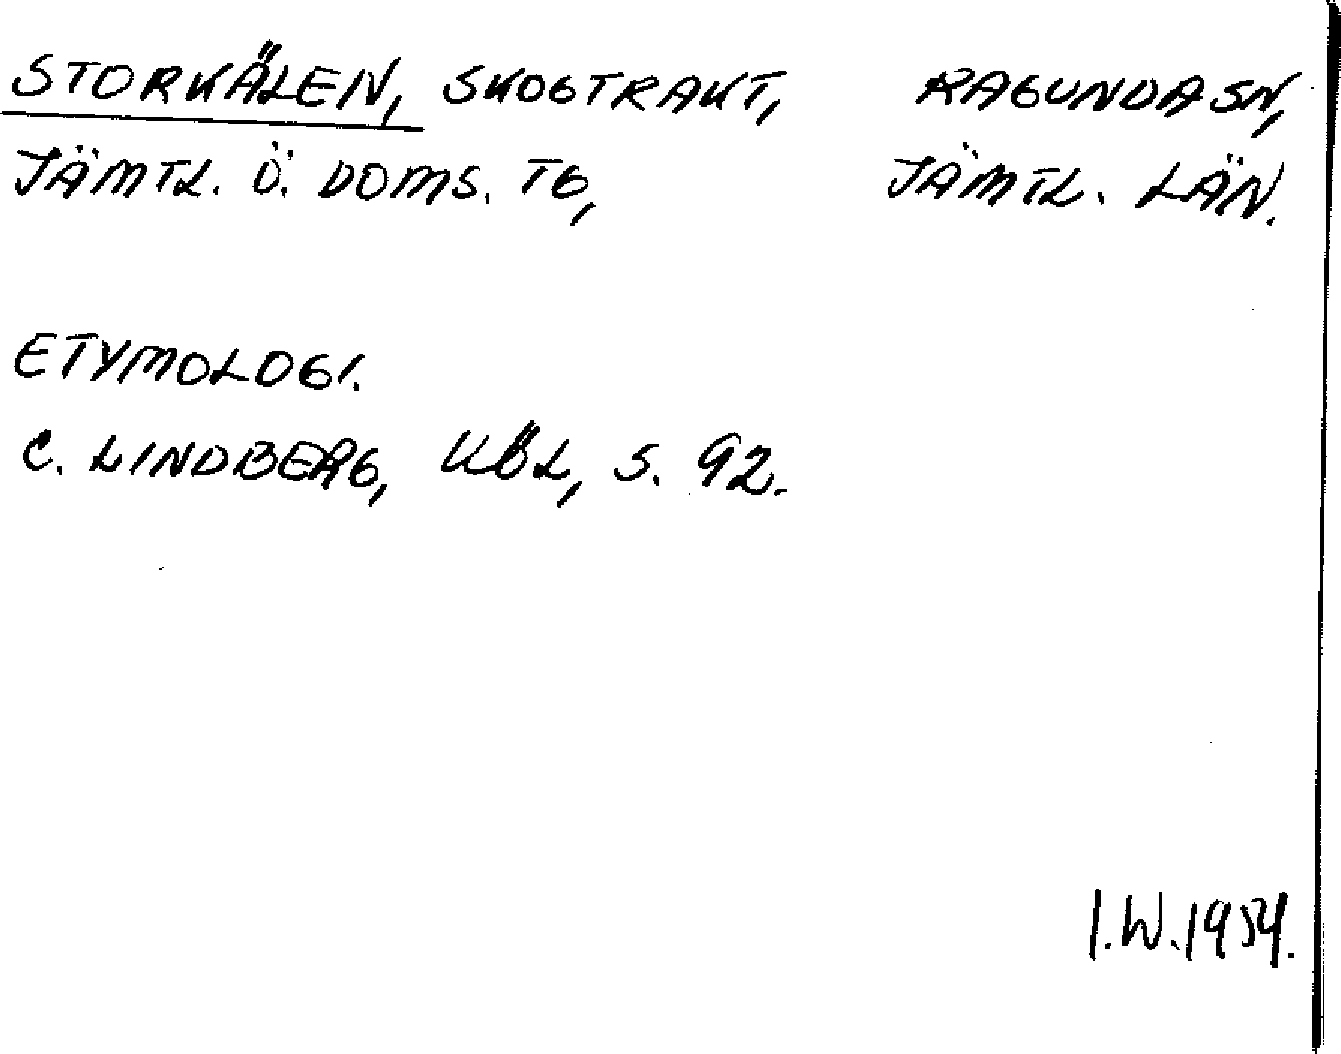 STORKÄLEN, SKOGTRAKT, RAGUNDA SN,
JÄMTL. Ö. DOMS. TG, JÄMTL. LÄN.
ETYMOLOGI.
C. LINDBERG, KÖL, S. 92.
I.W. 1954.